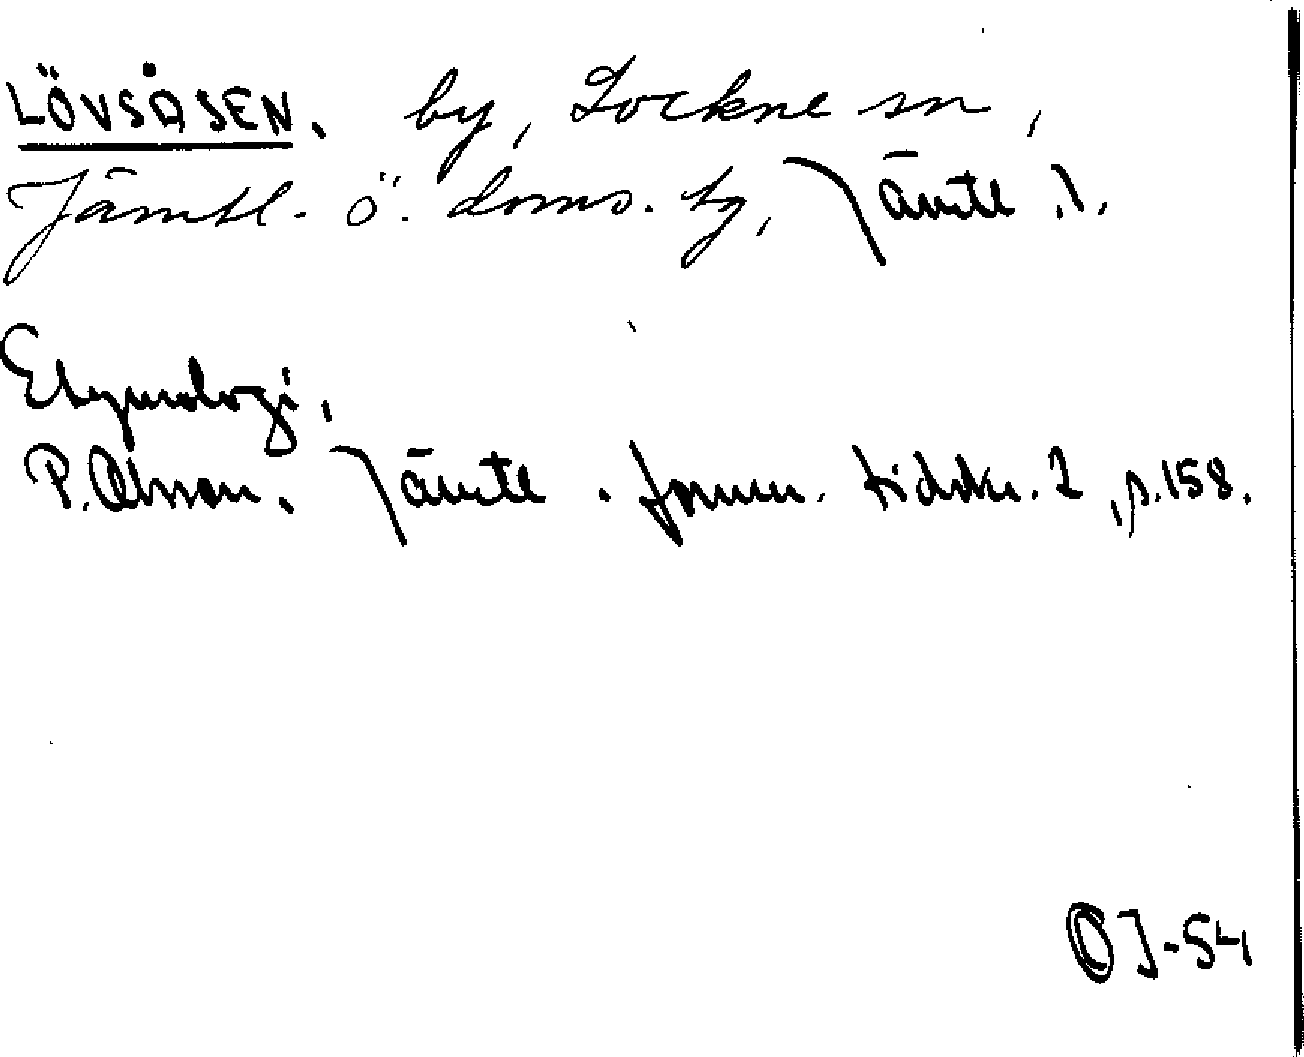 LÖVSÅSEN. by, Lockne sn,
Jämtl. ö. doms. tg, Jämtl. l.
Etymologi,
P. Olsson. Jämtl. fornm. tidskr. 2, p. 158.
OJ-54